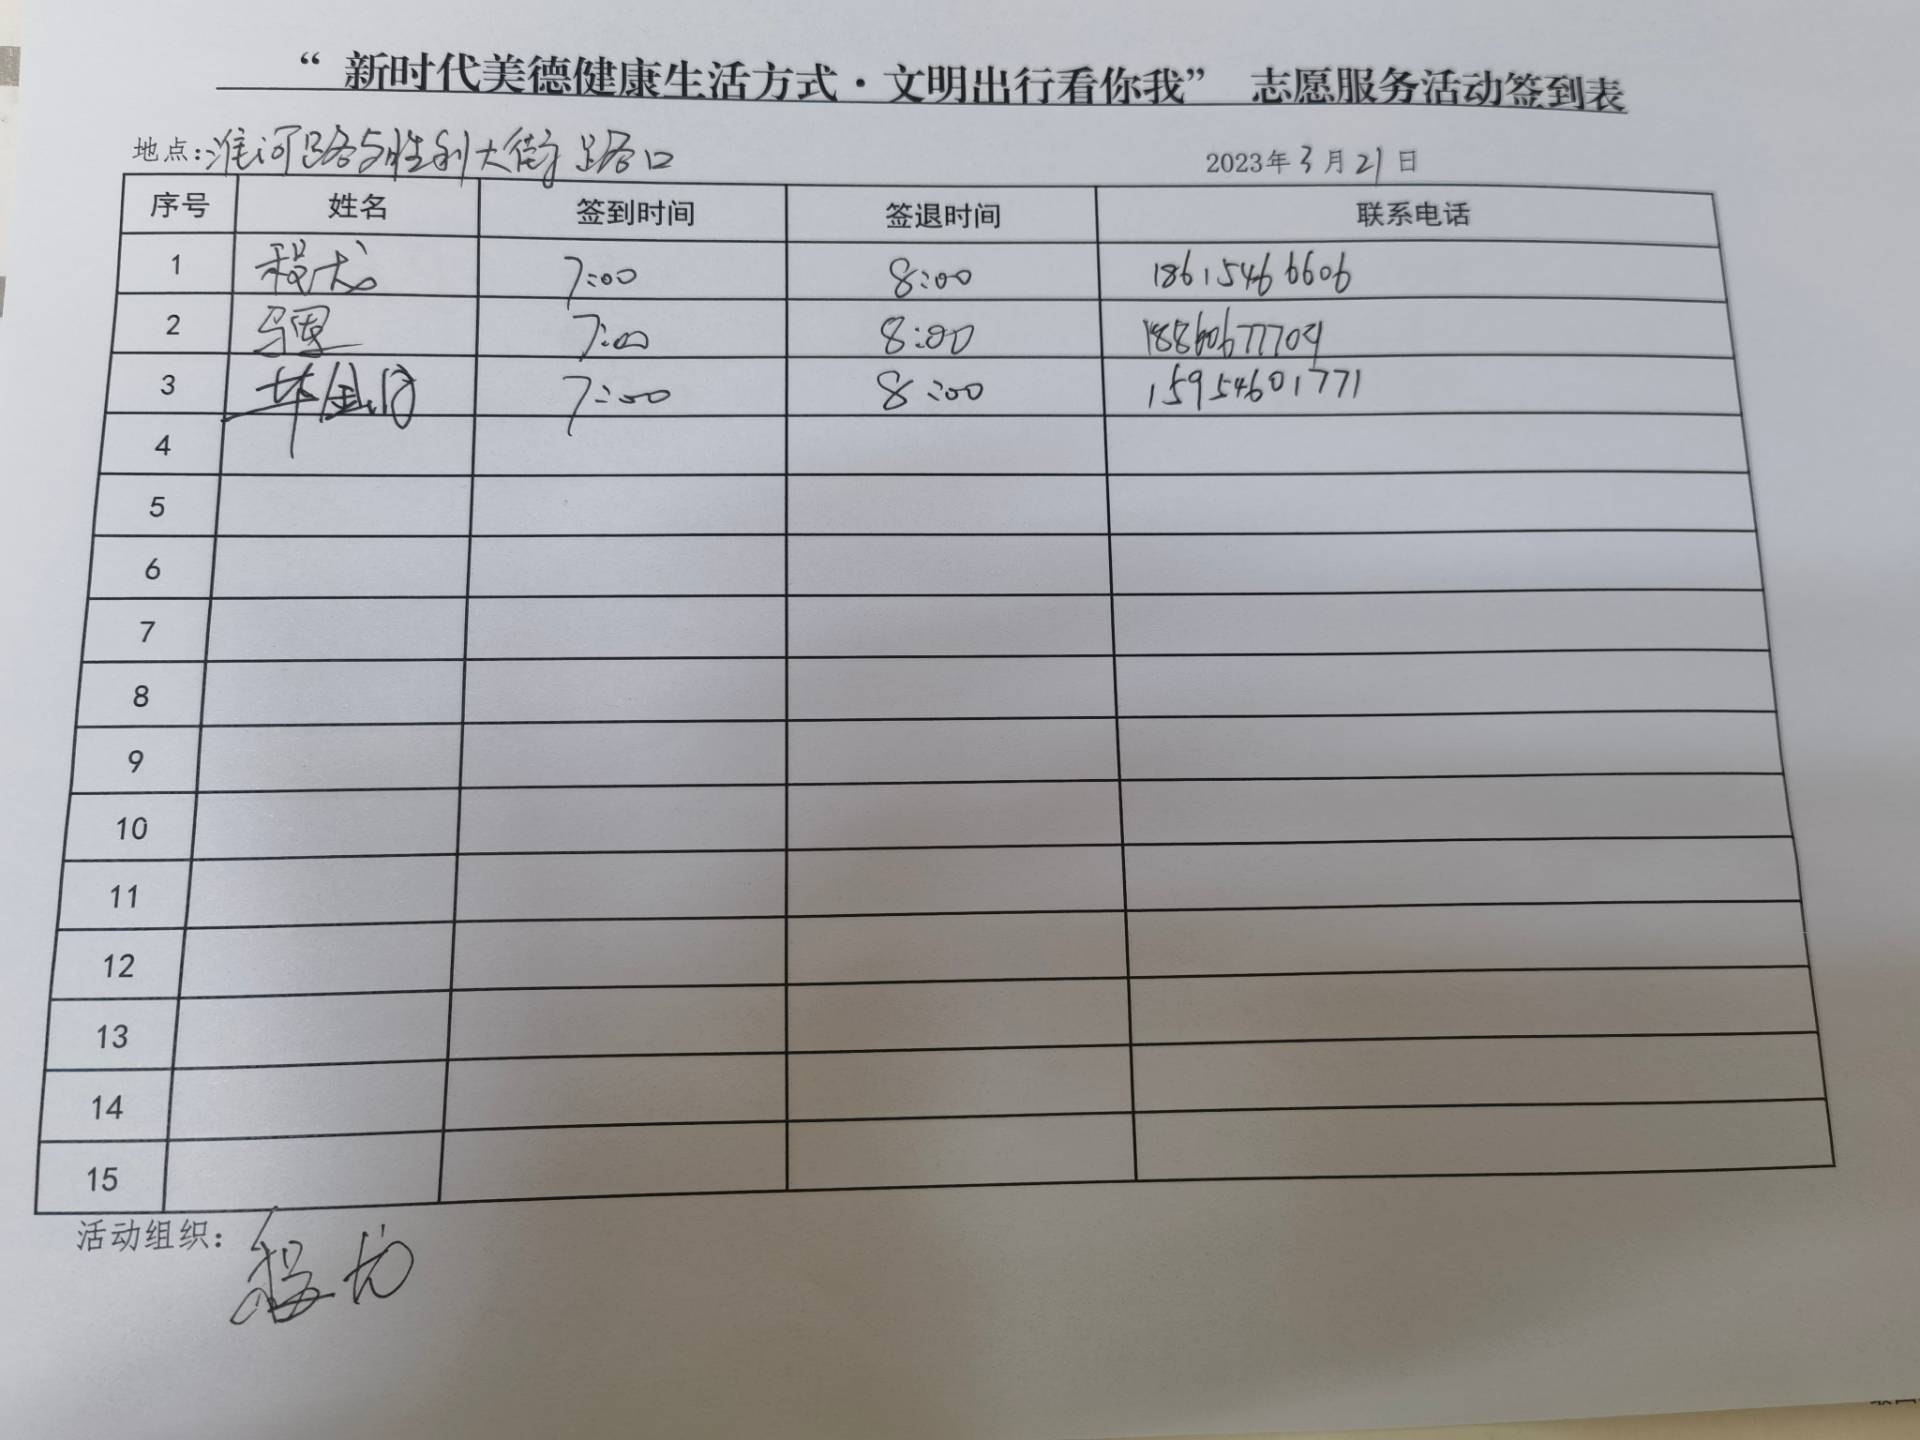 “新时代美德健康生活方式·文明出行看你我” 志愿服务活动签到表
地点:淮河路与胜利大街路口 2023年3月21日
序号 姓名 签到时间 签退时间 联系电话
1 程 7:00 8:00 18615466606
2 马 7:00 8:00
3 7:00 8:00 15954601771
4
5
6
7
8
9
10
11
12
13
14
15
活动组织: 程